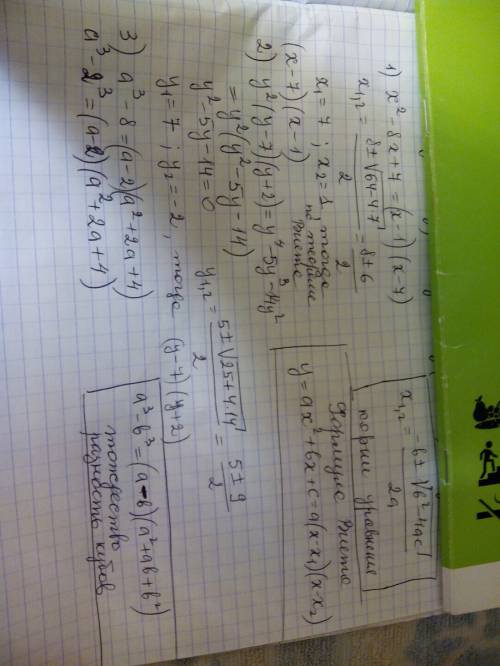 1) x² - 8x + 7 = (x-1)(x-7)
x₁,₂ = (8 ± √(64-4·7))/2 = (8 ± 6)/2
x₁ = 7 ; x₂ = 1, тогда по теореме Виета
(x-7)(x-1)
2) y²(y-7)(y+2) = y⁴-5y³-14y²
= y²(y²-5y-14)
y²-5y-14=0
y₁,₂ = (5 ± √(25+4·14))/2 = (5 ± 9)/2
y₁ = 7 ; y₂ = -2, тогда (y-7)(y+2)
3) a³ - 8 = (a-2)(a²+2a+4)
a³ - 2³ = (a-2)(a²+2a+4)
x₁,₂ = (-b ± √(b²-4ac))/2a
корни уравнения
Формула Виета
y = ax²+bx+c = a(x-x₁)(x-x₂)
a³-b³ = (a-b)(a²+ab+b²)
тождество
разность кубов